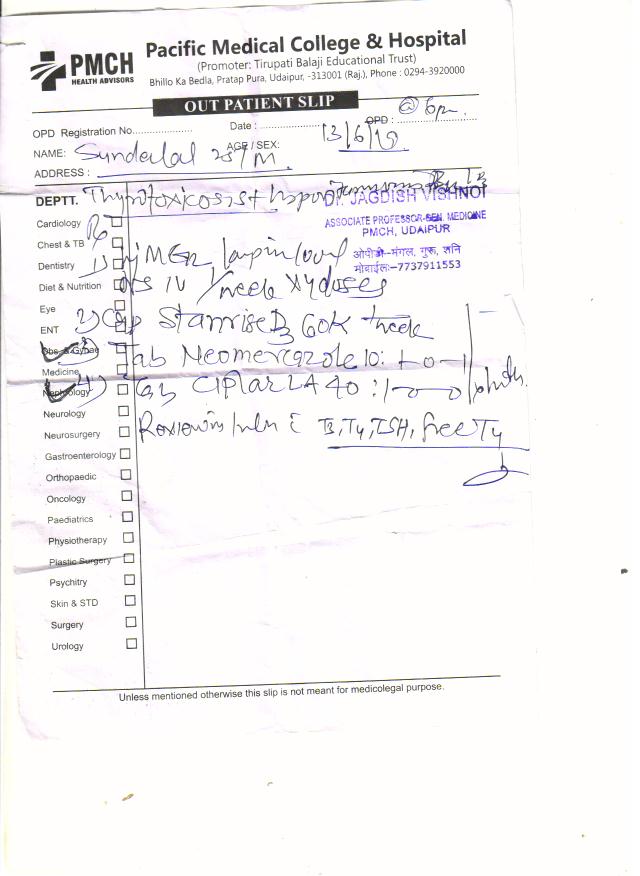 PMCH
HEALTH ADVISORS
Pacific Medical College & Hospital
(Promoter: Tirupati Balaji Educational Trust)
Bhillo Ka Bedla, Pratap Pura, Udaipur, -313001 (Raj.), Phone : 0294-3920000
OUT PATIENT SLIP
@ 6pm
OPD Registration No..................... Date : ..................... OPD : .....................
13/6/19
NAME: Sunderlal 25/M AGE / SEX:
ADDRESS :
DEPTT. Thyrotoxicosis
DR. JAGDISH VISHNOI
ASSOCIATE PROFESSOR-GEN. MEDICINE
PMCH, UDAIPUR
ओपीडी-मंगल, गुरु, शनि
मोबाईल:-7737911553
Cardiology
Chest & TB
Dentistry
Diet & Nutrition
IV 1/week X 4 doses
Eye
2) Cap Stanrise D3 60K 1 week
ENT
Obs. & Gynae
3) Tab Neomercazole 10 : 1-0-1
Medicine
Nephrology
4) Tab CIPLAR LA 40 : 1-0-0
Neurology
Review T3, T4, TSH, free T4
Neurosurgery
Gastroenterology
Orthopaedic
Oncology
Paediatrics
Physiotherapy
Plastic Surgery
Psychitry
Skin & STD
Surgery
Urology
Unless mentioned otherwise this slip is not meant for medicolegal purpose.